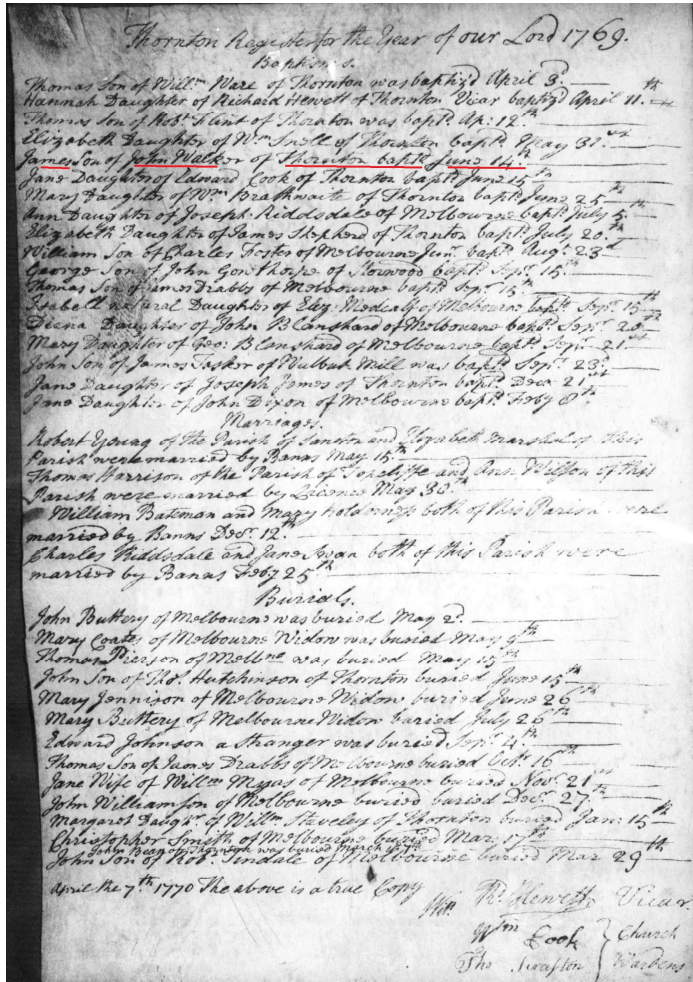 Thornton Register for the Year of our Lord 1769.
Baptisms.
Thomas Son of Willm Ware of Thornton was baptiz'd April 3d
Hannah Daughter of Richard Hewett of Thornton Vicar baptiz'd April 11th
Thomas Son of Robt Flint of Thornton was baptd Ap: 12th
Elizabeth Daughter of Wm Snell of Thornton baptd May 31st
James Son of John Walker of Thornton baptd June 14th
Jane Daughter of Edward Cook of Thornton baptd June 15th
Mary Daughter of Wm Brathwaite of Thornton baptd June 25th
Ann Daughter of Joseph Riddsdale of Melbourne baptd July 5th
Elizabeth Daughter of James Shepherd of Thornton baptd July 20th
William Son of Charles Foster of Melbourne Junr baptd Augt 23d
George Son of John Gowthorpe of Storwood baptd Sepr 15th
Thomas Son of James Drabbs of Melbourne baptd Sepr 15th
Isabell natural Daughter of Eliz: Medcalf of Melbourne baptd Sepr 15th
Diena Daughter of John Blanshard of Melbourne baptd Sepr 20th
Mary Daughter of Geo: Blanshard of Melbourne baptd Sepr 21st
John Son of James Tasker of Walbut Mill was baptd Sepr 23d
Jane Daughter of Joseph James of Thornton baptd Decr 21st
Jane Daughter of John Dixon of Melbourne baptd Feby 8th
Marriages.
Robert Young of the Parish of Sancton and Elizabeth Marshal of this
Parish were married by Banns May 15th
Thomas Harrison of the Parish of Topcliffe and Ann Wilson of this
Parish were married by Licence May 30th
William Bateman and Mary Holdorness both of this Parish were
married by Banns Decr 12th
Charles Riddsdale and Jane Swan both of this Parish were
married by Banns Feby 25th
Burials.
John Buttery of Melbourne was buried May 2d
Mary Coates of Melbourne Widow was buried May 9th
Thomas Pierson of Melbne was buried May 15th
John Son of Thos Hutchinson of Thornton buried June 15th
Mary Jennison of Melbourne Widow buried June 26th
Mary Buttery of Melbourne Widow buried July 26th
Edward Johnson a Stranger was buried Sepr 4th
Thomas Son of James Drabbs of Melbourne buried Octr 16th
Jane Wife of Willm Myas of Melbourne buried Novr 21st
John Williamson of Melbourne buried buried Decr 27th
Margaret Daughr of Willm Staveley of Thornton buried Janr 15th
Christopher Smith of Melbourne buried Mar 17th
John Bean of Thornton was buried March
John Son of Robt Tindale of Melbourne buried Mar 29th
April the 7th 1770 The above is a true Copy
Wits
Rd Hewett Vicar.
Wm Cook } Church
Tho Swafton } Wardens